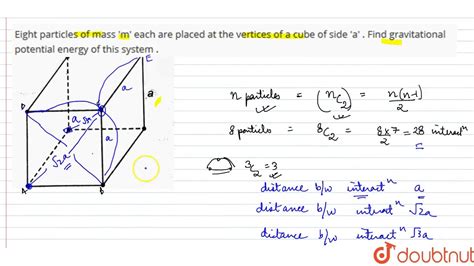 Eight particles of mass 'm' each are placed at the vertices of a cube of side 'a' . Find gravitational
potential energy of this system .
n particles = (nC2) = n(n-1)/2
8 particles = 8C2 = 8x7/2 = 28 interactn
3/2 = 3
distance b/w interactn a
distance b/w interactn √2a
distance b/w interactn √3a
E
D
a
a
a
a
√3a
√2a
A
B
doubtnut